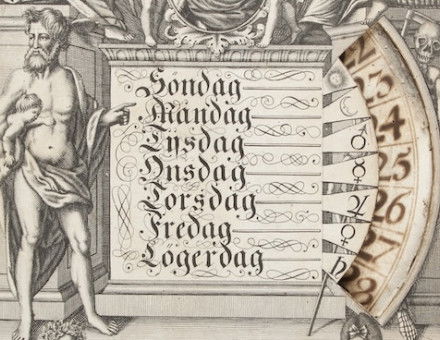 Söndag
Måndag
Tysdag
Onsdag
Torsdag
Fredag
Lögerdag
☉
☾
♂
☿
♃
♀
♄
22
23
24
25
26
27
28